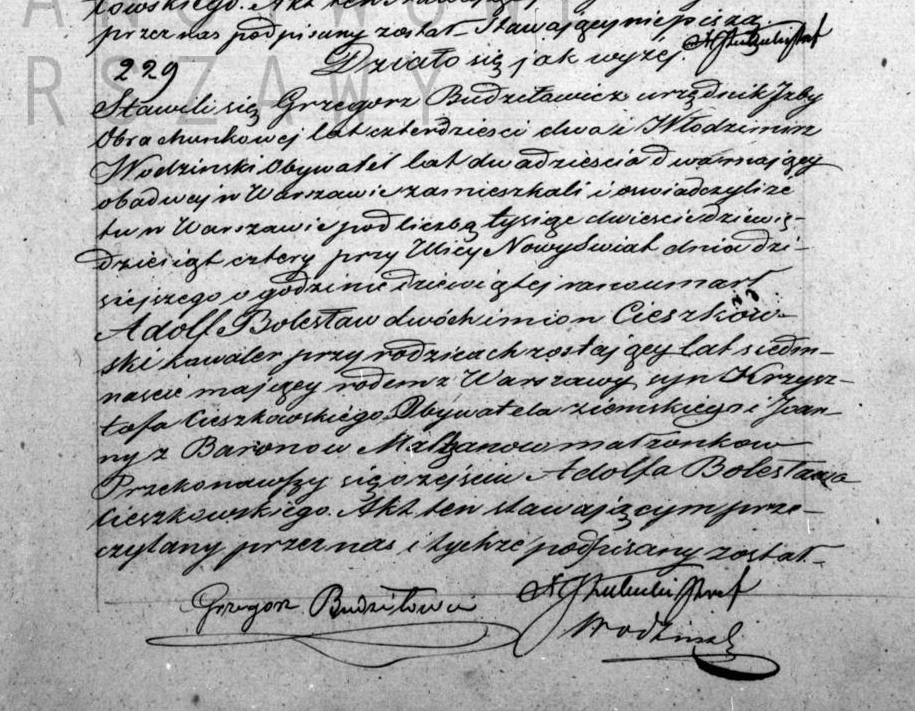 przez nas podpisany został. Stawający nie piszą.
229 Działo się jak wyżej.
Stawili się Grzegorz Budziłowicz urzędnik Izby
Obrachunkowej lat czterdzieści dwa i Włodzimirz
Wodzinski Obywatel lat dwadzieścia dwa mający
obadwaj w Warszawie zamieszkali i oswiadczyli że
tu w Warszawie pod liczbą tysiąc dwieście dziewię-
dziesiąt cztery przy Ulicy Nowy Swiat dnia dzi-
siejszego o godzinie dziewiątej rano umarł
Adolf Bolesław dwóch imion Cieszkow-
ski kawaler przy rodzicach zostający lat siedm-
naście mający rodem z Warszawy, syn Krzysz-
tofa Cieszkowskiego Obywatela ziemskiego i Joan-
ny z Baronow Maltzanow małzonkow
Przekonawszy się o zejściu Adolfa Bolesława
Cieszkowskiego. Akt ten stawającym prze-
czytany przez nas i tychże podpisany został.
Grzegorz Budziłowicz
Wodzinski